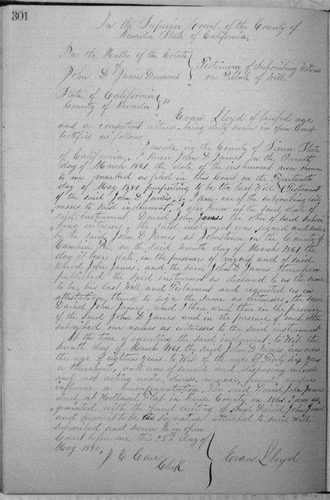 301
In the Superior Court of the County of
Nevada State of California
In the Matter of the Estate
of
John D. James Deceased
Testimony of Subscribing Witness
on Probate of Will
State of California
County of Nevada ss
Evan Lloyd of lawful age
and a competent witness being duly sworn in open Court
testifies as follows
I reside in the County of Sierra State
of California, I knew John D James on the
day of March 1861 the date of the instrument now shown
to me marked as filed in this Court on the
day of May 1880 purporting to be the last Will & Testament
of the said John D James, I am one of the subscribing wit-
nesses to said instrument. I also knew at the same date of
said instrument David John James the other of said subscri-
bing witnesses. The said instrument was signed and
by the said John D James at Johnstown in the County of
Cambria Pa. on the said day of March 1861 the
day it bears date, in the presence of myself and of said
David John James, and the said John D James thereupon
published the said instrument as and declared to us the same
to be, his last Will and Testament and requested us in
attestation thereof to sign the same as witnesses, the said
David John James and I then and there in the presence
of the said John D James and in the presence of each other
subscribed our names as witnesses to the said instrument
At the time of executing the said instrument, to Wit the
day of March 1861 the said John D James was over
the age of eighteen years to Wit of the age of years
or thereabouts, and was of sound and disposing mind
and not acting under duress, menace, fraud
influence or misrepresentation. The said David John James
died at Holland Flat in County in 1865 I was ac-
quainted with the hand writing of said David John James
and the signature attached to said Will
Subscribed and sworn to in open
Court before me this 25th day of
May 1880
Clerk
Evan Lloyd